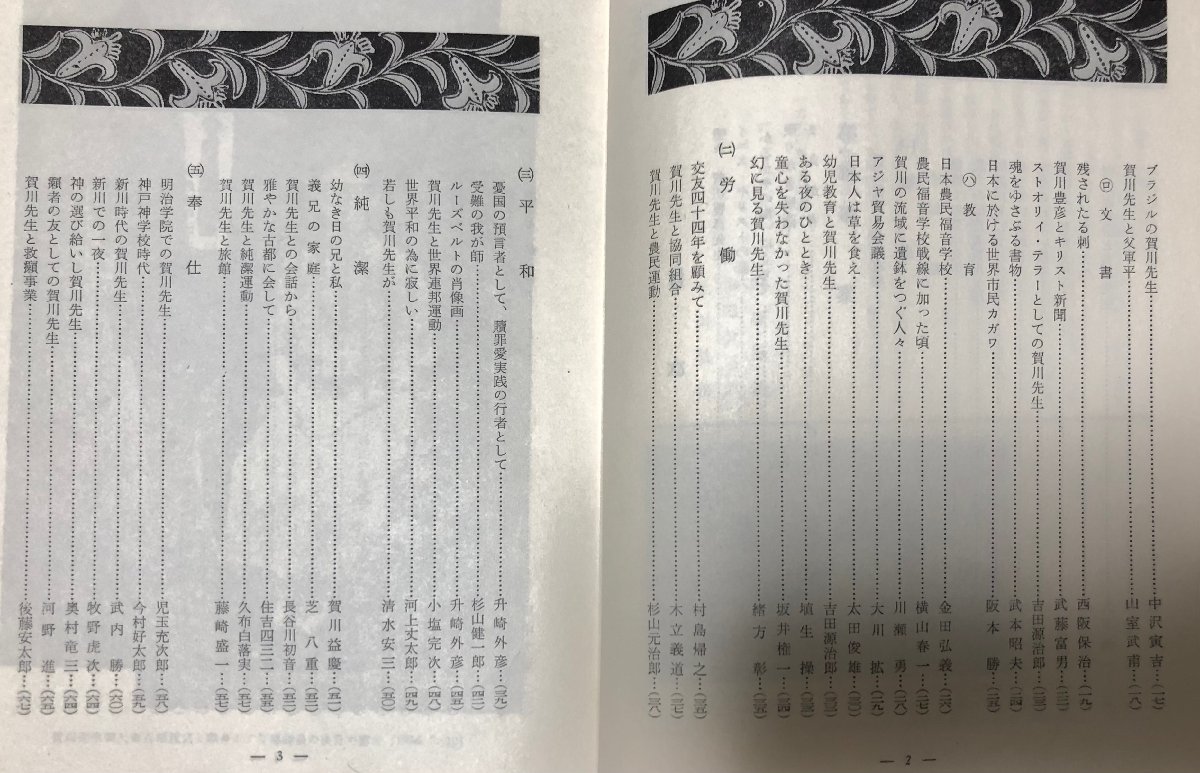 ブラジルの賀川先生……中沢寅吉…(一七)
賀川先生と父軍平……山室武甫…(一八)
㋺ 文書
残されたる刺……西阪保治…(一九)
賀川豊彦とキリスト新聞……武藤富男…
ストオリィ・テラーとしての賀川先生……吉田源治郎…
魂をゆさぶる書物……武本昭夫…(二四)
日本に於ける世界市民カガワ……阪本勝…(二五)
㋩ 教育
日本農民福音学校……金田弘義…(二六)
農民福音学校戦線に加った頃……横山春一…(二七)
賀川の流域に遺鉢をつぐ人々……川瀬勇…(二八)
アジヤ貿易会議……大川拡…(二九)
日本人は草を食え……太田俊雄…
幼児教育と賀川先生……吉田源治郎…
ある夜のひととき……埴生操…
童心を失わなかった賀川先生……坂井権一…
幻に見る賀川先生……緒方彰…(三五)
㈡ 労働
交友四十四年を顧みて……村島帰之…(三五)
賀川先生と協同組合……木立義道…(三七)
賀川先生と農民運動……杉山元治郎…(三八)
— 2 —
㈢ 平和
憂国の預言者として、贖罪愛実践の行者として……升崎外彦…(三九)
受難の我が師……杉山健一郎…(四二)
ルーズベルトの肖像画……升崎外彦…(四五)
賀川先生と世界連邦運動……小塩完次…(四八)
世界平和の為に寂しい……河上丈太郎…(四九)
若しも賀川先生が……清水安三…(五〇)
㈣ 純潔
幼なき日の兄と私……賀川益慶…(五一)
義兄の家庭……芝八重…(五二)
賀川先生との会話から……長谷川初音…(五三)
雅やかな古都に会して……住吉四三二…(五五)
賀川先生と純潔運動……久布白落実…(五七)
賀川先生と旅館……藤崎盛一…(五七)
㈤ 奉仕
明治学院での賀川先生……児玉充次郎…(五八)
神戸神学校時代……今村好太郎…(五九)
新川時代の賀川先生……武内勝…(六〇)
新川での一夜……牧野虎次…(六四)
神の選び給いし賀川先生……奥村竜三…(六四)
癩者の友としての賀川先生……河野進…(六五)
賀川先生と救癩事業……後藤安太郎…(六七)
— 3 —